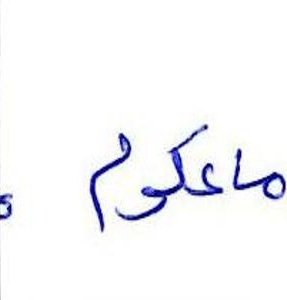 ماعكوم